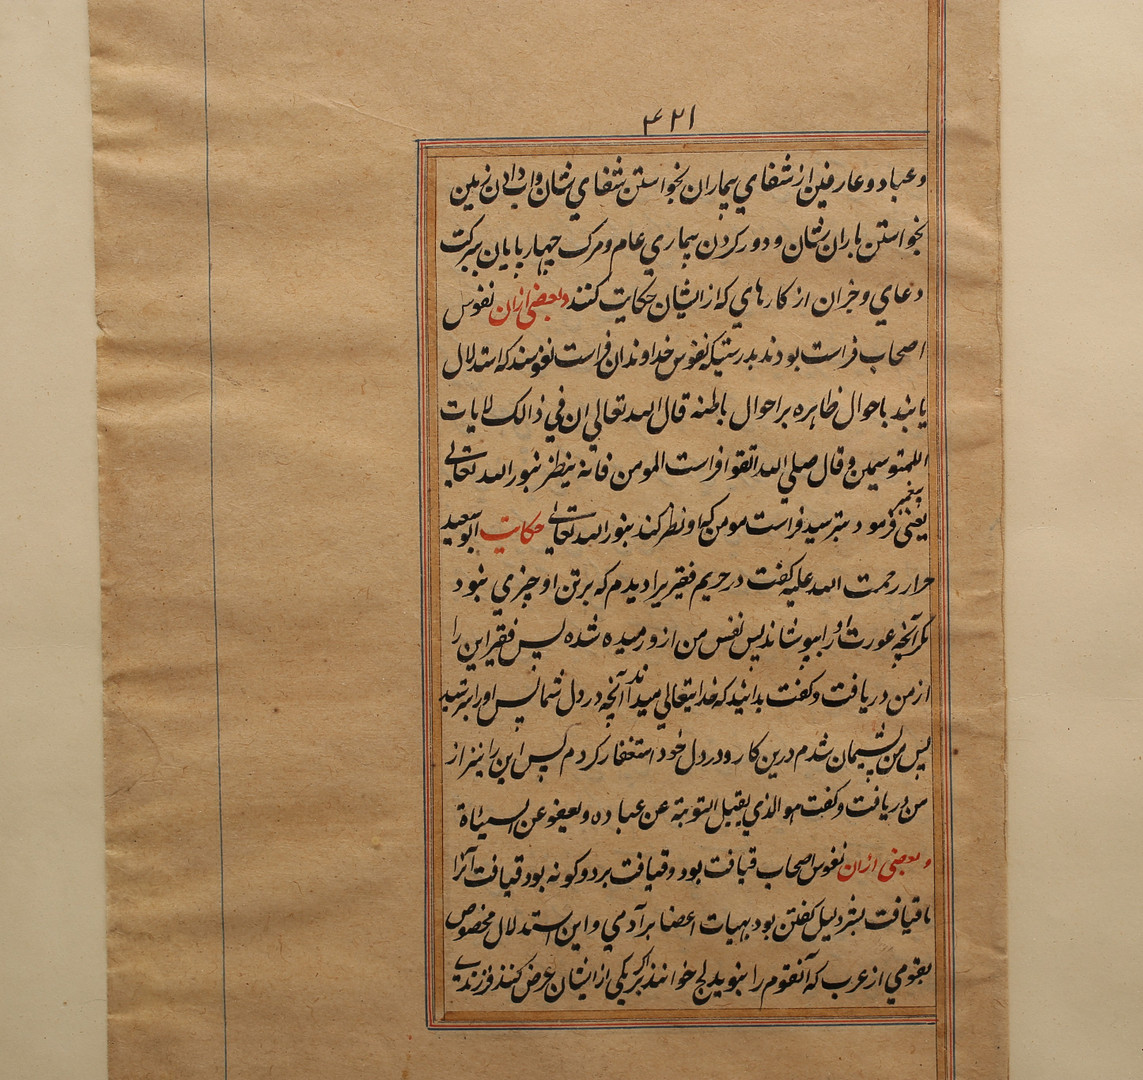 ۴۲۱
و عباد و عارفین از شفاي بیماران بخواستن شفاي نشان و اب دادن زمین
بخواستن باران نشان و دور کردن بیماري عام و مرک چهار پایان ببرکت
دعاي و جزان از کارهاي که از ایشان حکایت کنند و بعضی ازان نفوس
اصحاب فراست بودند بدرستیکه نفوس خداوندان فراست نفوسند که استدلال
یابند باحوال ظاهره بر احوال باطنه قال الله تعالي ان في ذالک لایات
اللمتوسیمن و قال صلي الله اتقوا فراست المومن فانه ینظر بنور الله تعالی
یعنی پیغمبر فرمود بترسید فراست مومن که او نظر کند بنور الله تعالی حکایت ابو سعید
خرار رحمت الله علیه کفت در حریم فقیریرا دیدم که بر تن او چیزي نبود
مکر آنچه عورت او را بپوشاند پس نفس من ازو رمیده شده پس فقیر این را
از من دریافت و کفت بدانید که خدایتعالي میداند آنچه در دل شمااپس اورا بترسید
پس من پشیمان شدم درین کار و در دل خود استغفار کردم پس این را نیز از
من دریافت و کفت هو الذي یقبل التوبة عن عباده و یعفو عن السیئاة
و بعضی ازان نفوس اصحاب قیافت بود و قیافت بر دو کونه بود قیافت آنرا
ما قیافت بشر دلیل کفتن بود بهیات اعضا بر آدمي و این استدلال مخصوص
بقومي از عرب که آنقوم را بنویدلج خوانند اکر بریکي از ایشان عرض کنند فرزندیی